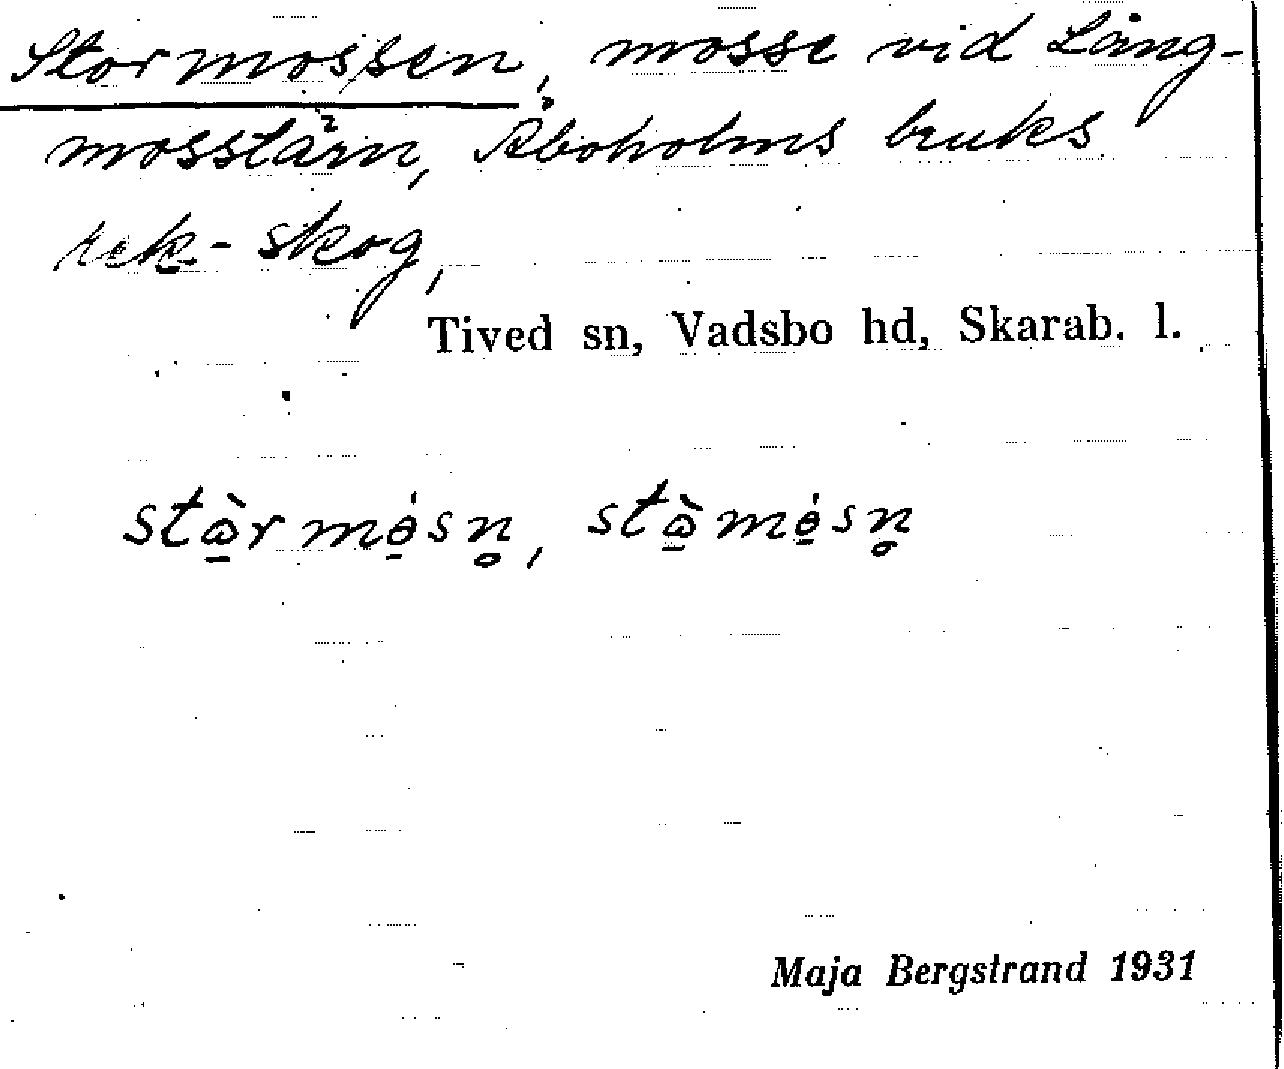 Stormossen, mosse vid Lång-
mosstärn, Åboholms bruks
rek-skog,
Tived sn, Vadsbo hd, Skarab. l.
stɷ̠̀rmɵ̠́sn̥, stɷ̠̀mɵ̠́sn̥
Maja Bergstrand 1931